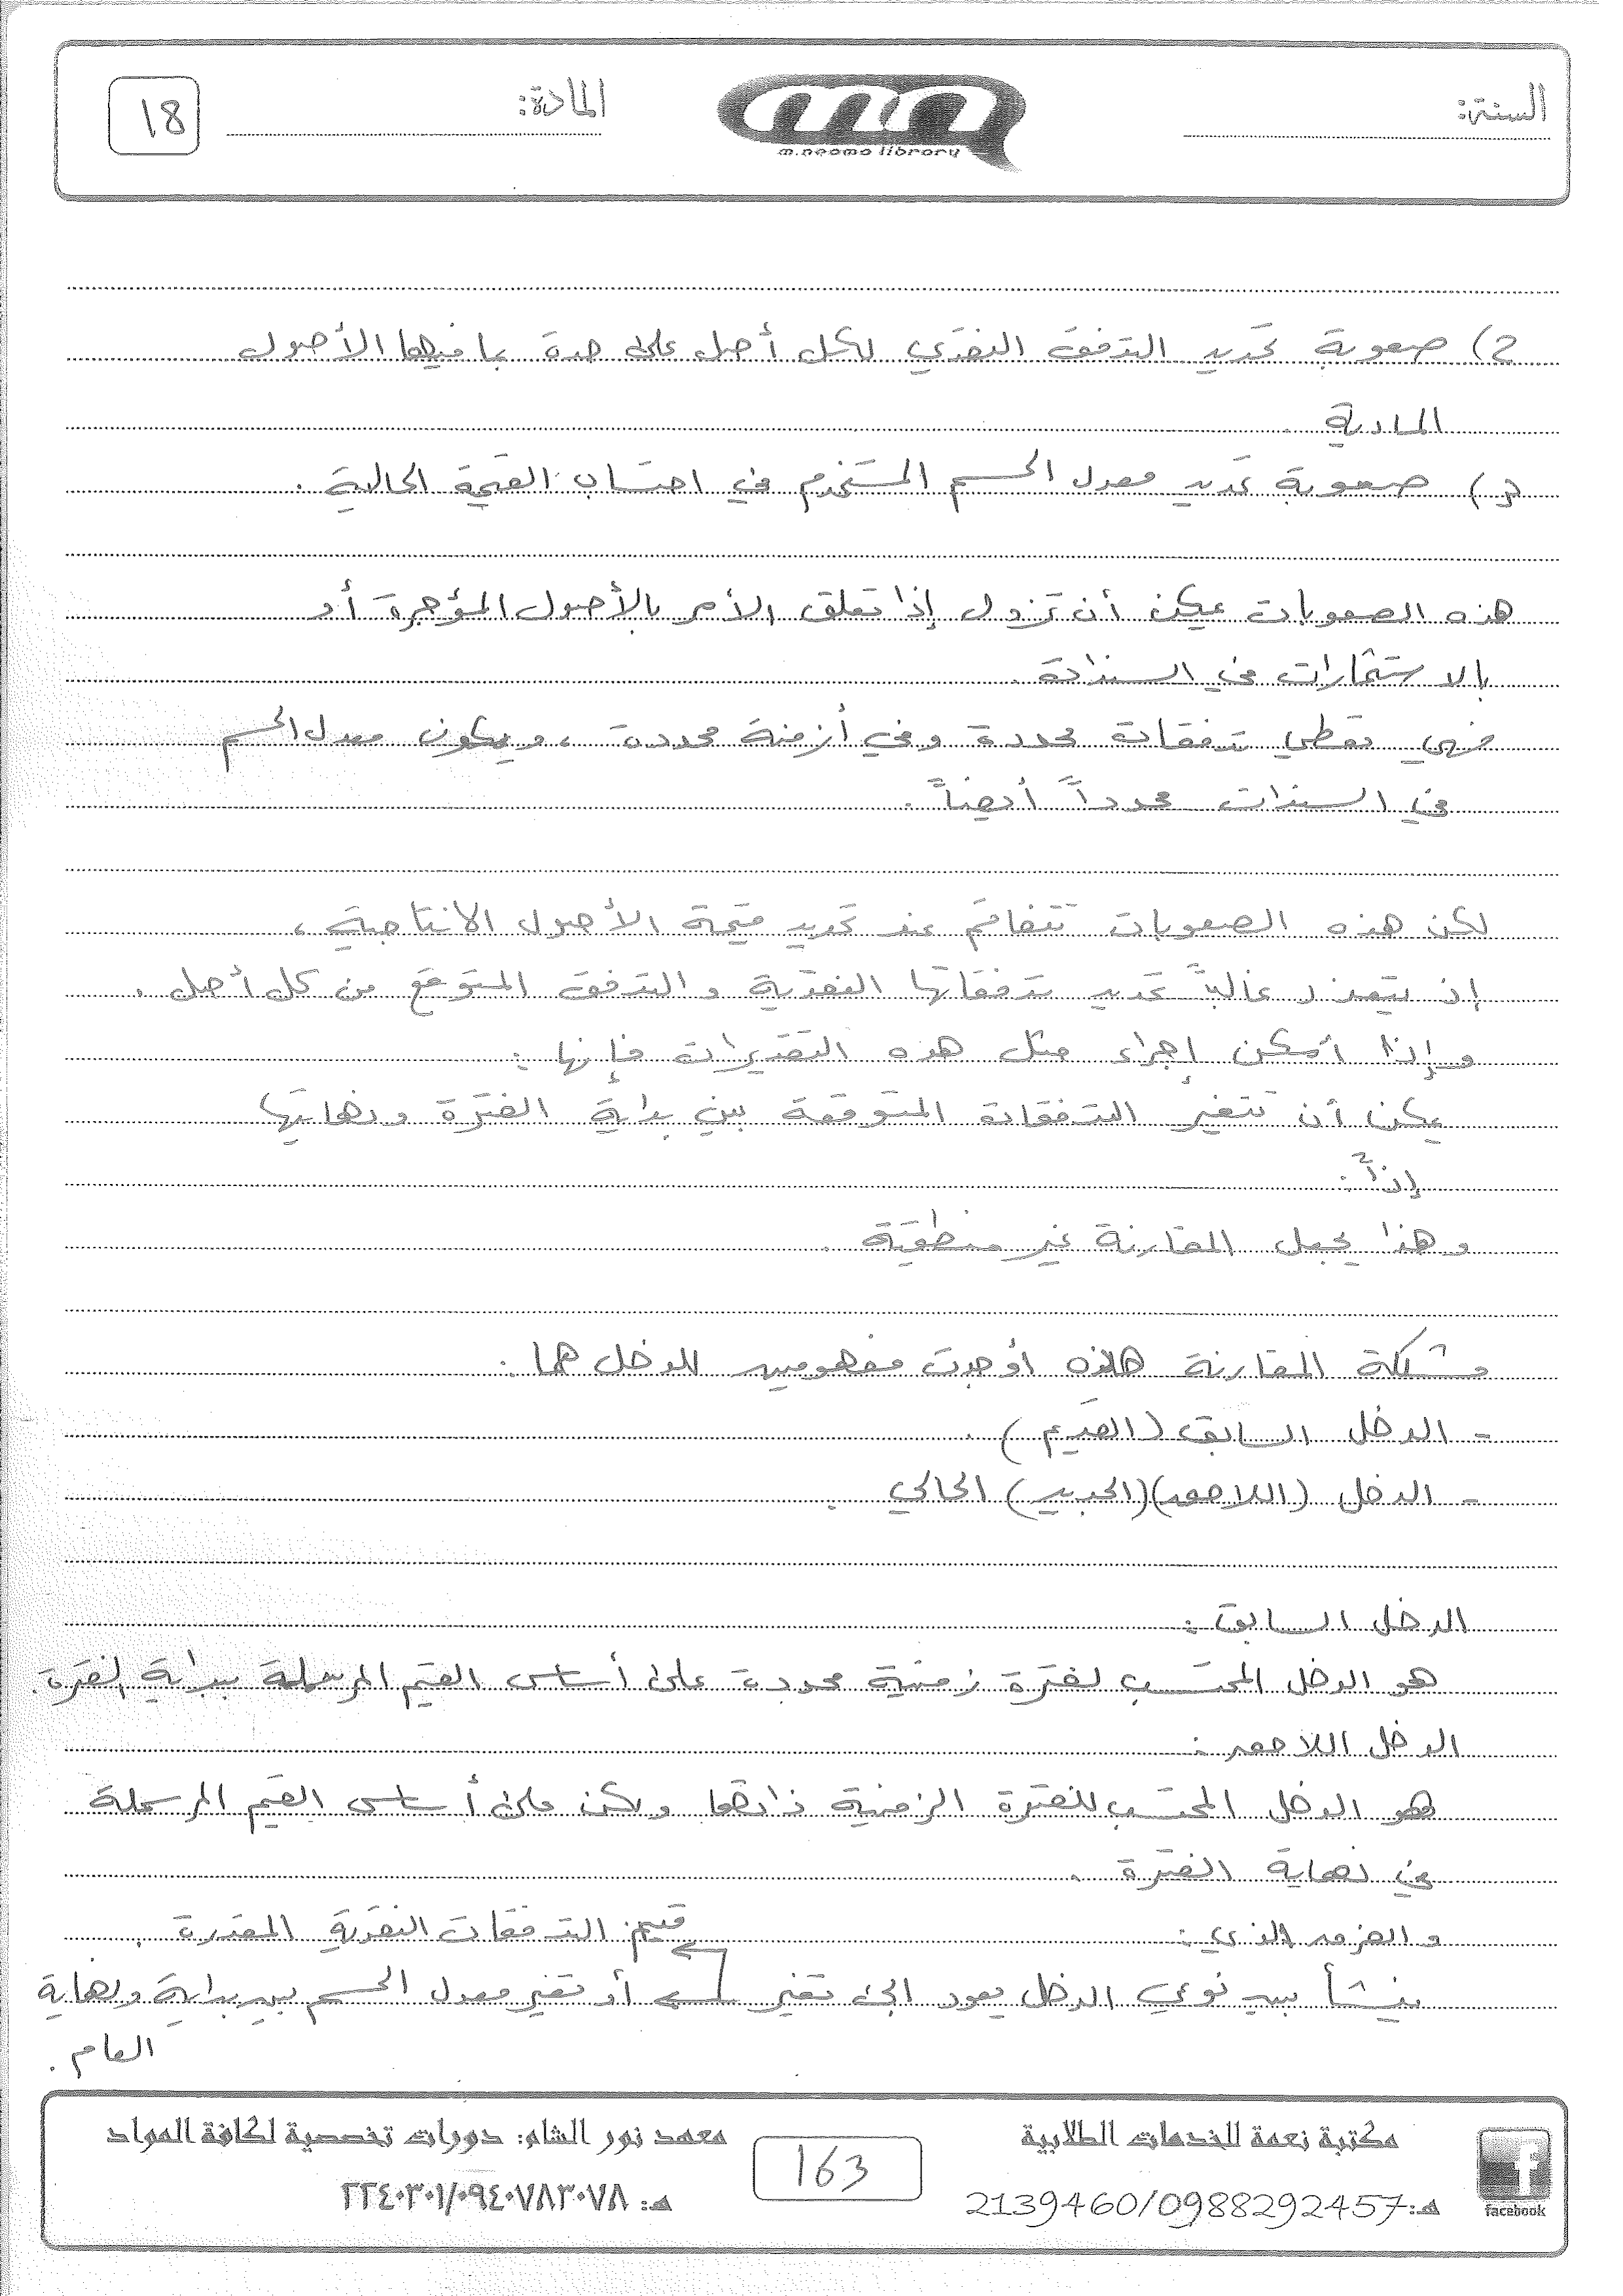 السنة:
المادة:
18
m.neama library
2) صعوبة تحديد التدفق النقدي لكل أصل على حدة بما فيها الأصول
المادية .
3) صعوبة تحديد معدل الحسم المستخدم في احتساب القيمة الحالية .
هذه الصعوبات يمكن أن تزول إذا تعلق الأمر بالأصول المؤجرة أو
بالاستثمارات في السندات .
فهي تعطي تدفقات محددة وفي أزمنة محددة ، ويكون معدل الحسم
في السندات محدداً أيضاً .
لكن هذه الصعوبات تتفاقم عند تحديد قيمة الأصول الانتاجية ،
إذ يتعذر غالباً تحديد تدفقاتها النقدية والتدفق المتوقع من كل أصل .
وإذا أمكن إجراء مثل هذه التقديرات فإنها :
يمكن أن تتغير التدفقات المتوقعة بين بداية الفترة ونهايتها
إذاً :
وهذا يجعل المقارنة غير منطقية .
مشكلة المقارنة هذه أوجدت مفهومين للدخل هما :
- الدخل السابق (القديم) .
- الدخل (اللاحق)(الجديد) الحالي .
الدخل السابق :
هو الدخل المحتسب لفترة زمنية محددة على أساس القيم المرسملة ببداية الفترة .
الدخل اللاحق :
فهو الدخل المحتسب للفترة الزمنية ذاتها ولكن على أساس القيم المرسملة
في نهاية الفترة .
والفرق الذي :
قيم التدفقات النقدية المقدرة .
ينشأ بين نوعي الدخل يعود إلى تغير أو تغير معدل الحسم بين بداية ونهاية
العام .
مكتبة نعمة للخدمات الطلابية
هـ: 2139460/0988292457
163
معهد نور الشام: دورات تخصصية لكافة المواد
هـ: ٢٢٤٠٣٠١/٠٩٤٠٧٨٣٠٧٨
facebook